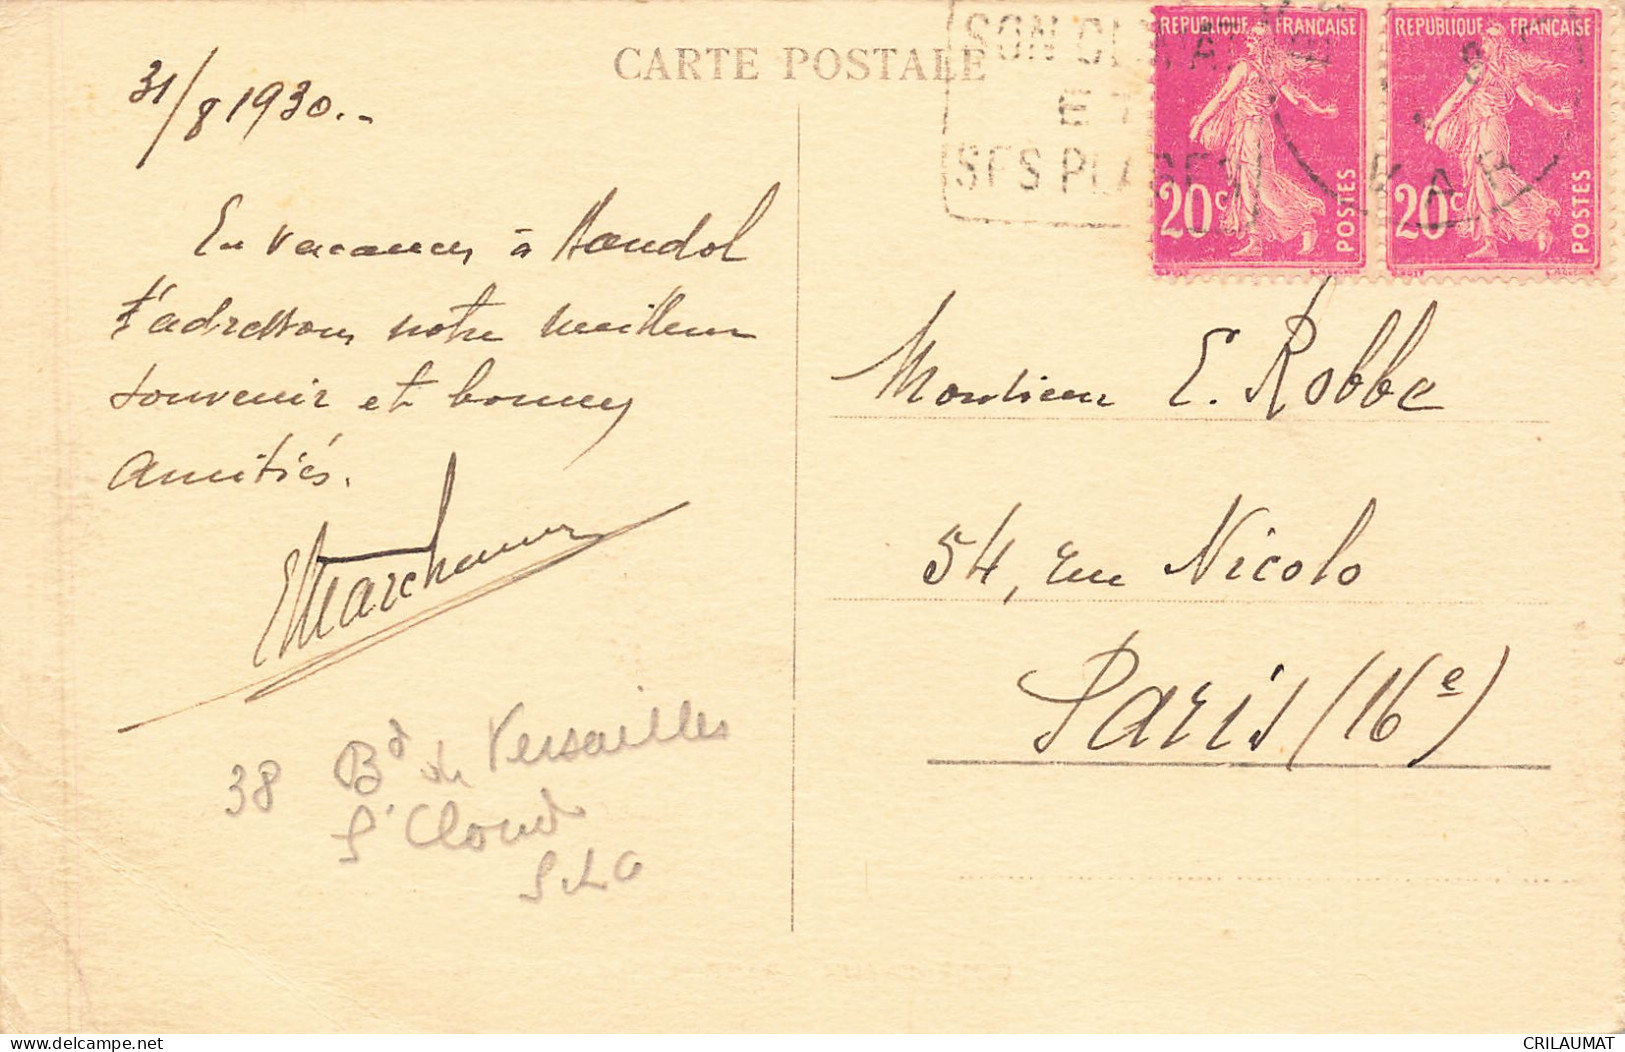 CARTE POSTALE
31/8 1930..
En vacances à Bandol
t'adressons notre meilleur
souvenir et bonnes
amitiés.
EMarchand
38 Bd de Versailles
St Cloud
S.&O
SON CLIMAT
ET
SES PLAGES
VAR
REPUBLIQUE FRANÇAISE
20c
POSTES
REPUBLIQUE FRANÇAISE
20c
POSTES
Monsieur E. Robbe
54, rue Nicolo
Paris (16e)
CRILAUMAT